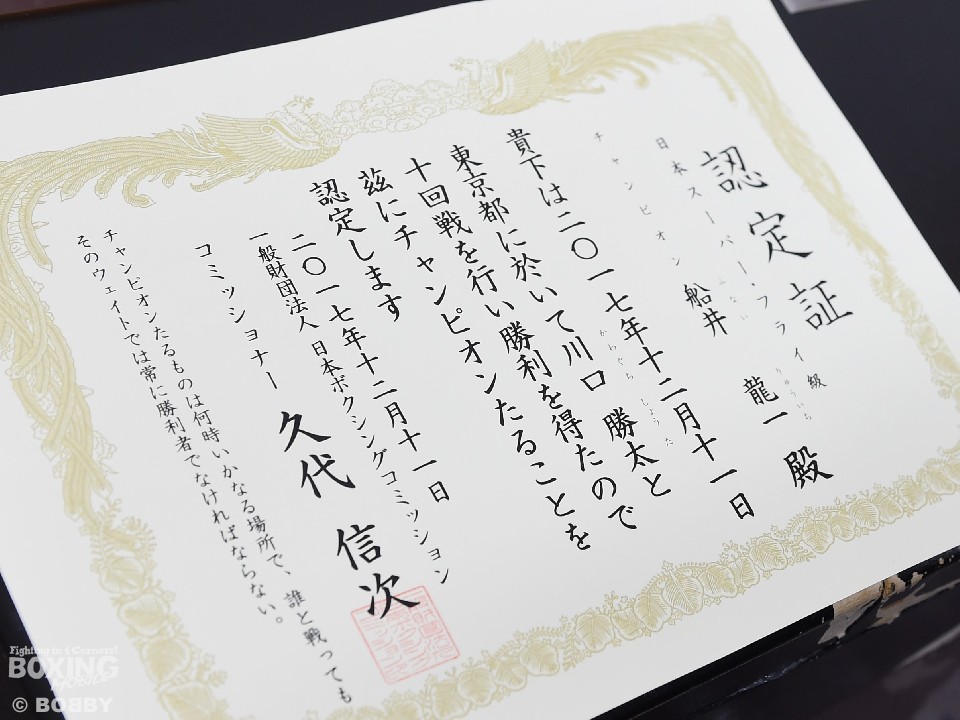 認定証
日本スーパー・フライ級
チャンピオン 船井 龍一 殿
ふない りゅういち
貴下は二〇一七年十二月十一日
東京都に於いて川口 勝太と
かわぐち しょうた
十回戦を行い勝利を得たので
茲にチャンピオンたることを
認定します
二〇一七年十二月十一日
一般財団法人 日本ボクシングコミッション
コミッショナー 久代 信次
チャンピオンたるものは何時いかなる場所で、誰と戦っても
そのウェイトでは常に勝利者でなければならない。
Fighting in 4 Corners!
BOXING
© BOBBY